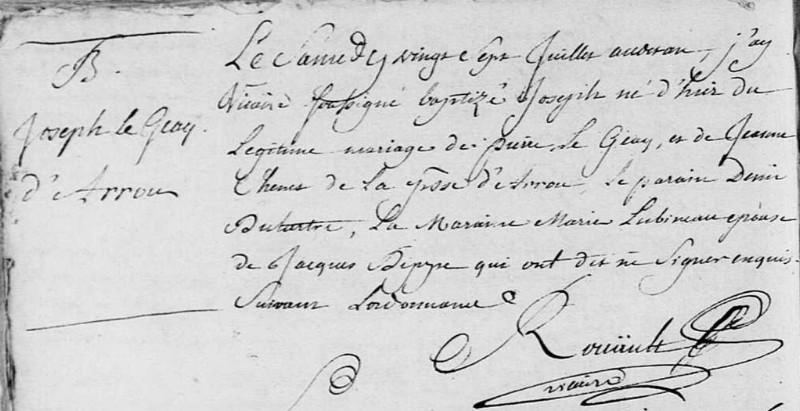 B.
Joseph le Geay
d'Arrou
Le Samedy vingt Sept Juillet audit an, j'ay
Vicaire soussigné baptizé Joseph né d'hier du
Legitime mariage de pierre Le Geay, et de Jeanne
de La psse d'Arrou, le parain Denis
Dutartre, La Maraine Marie Lubineau epouse
de Jacques qui ont dit ne Signer enquis
Suivant Lordonnance
Rouäult
vicaire